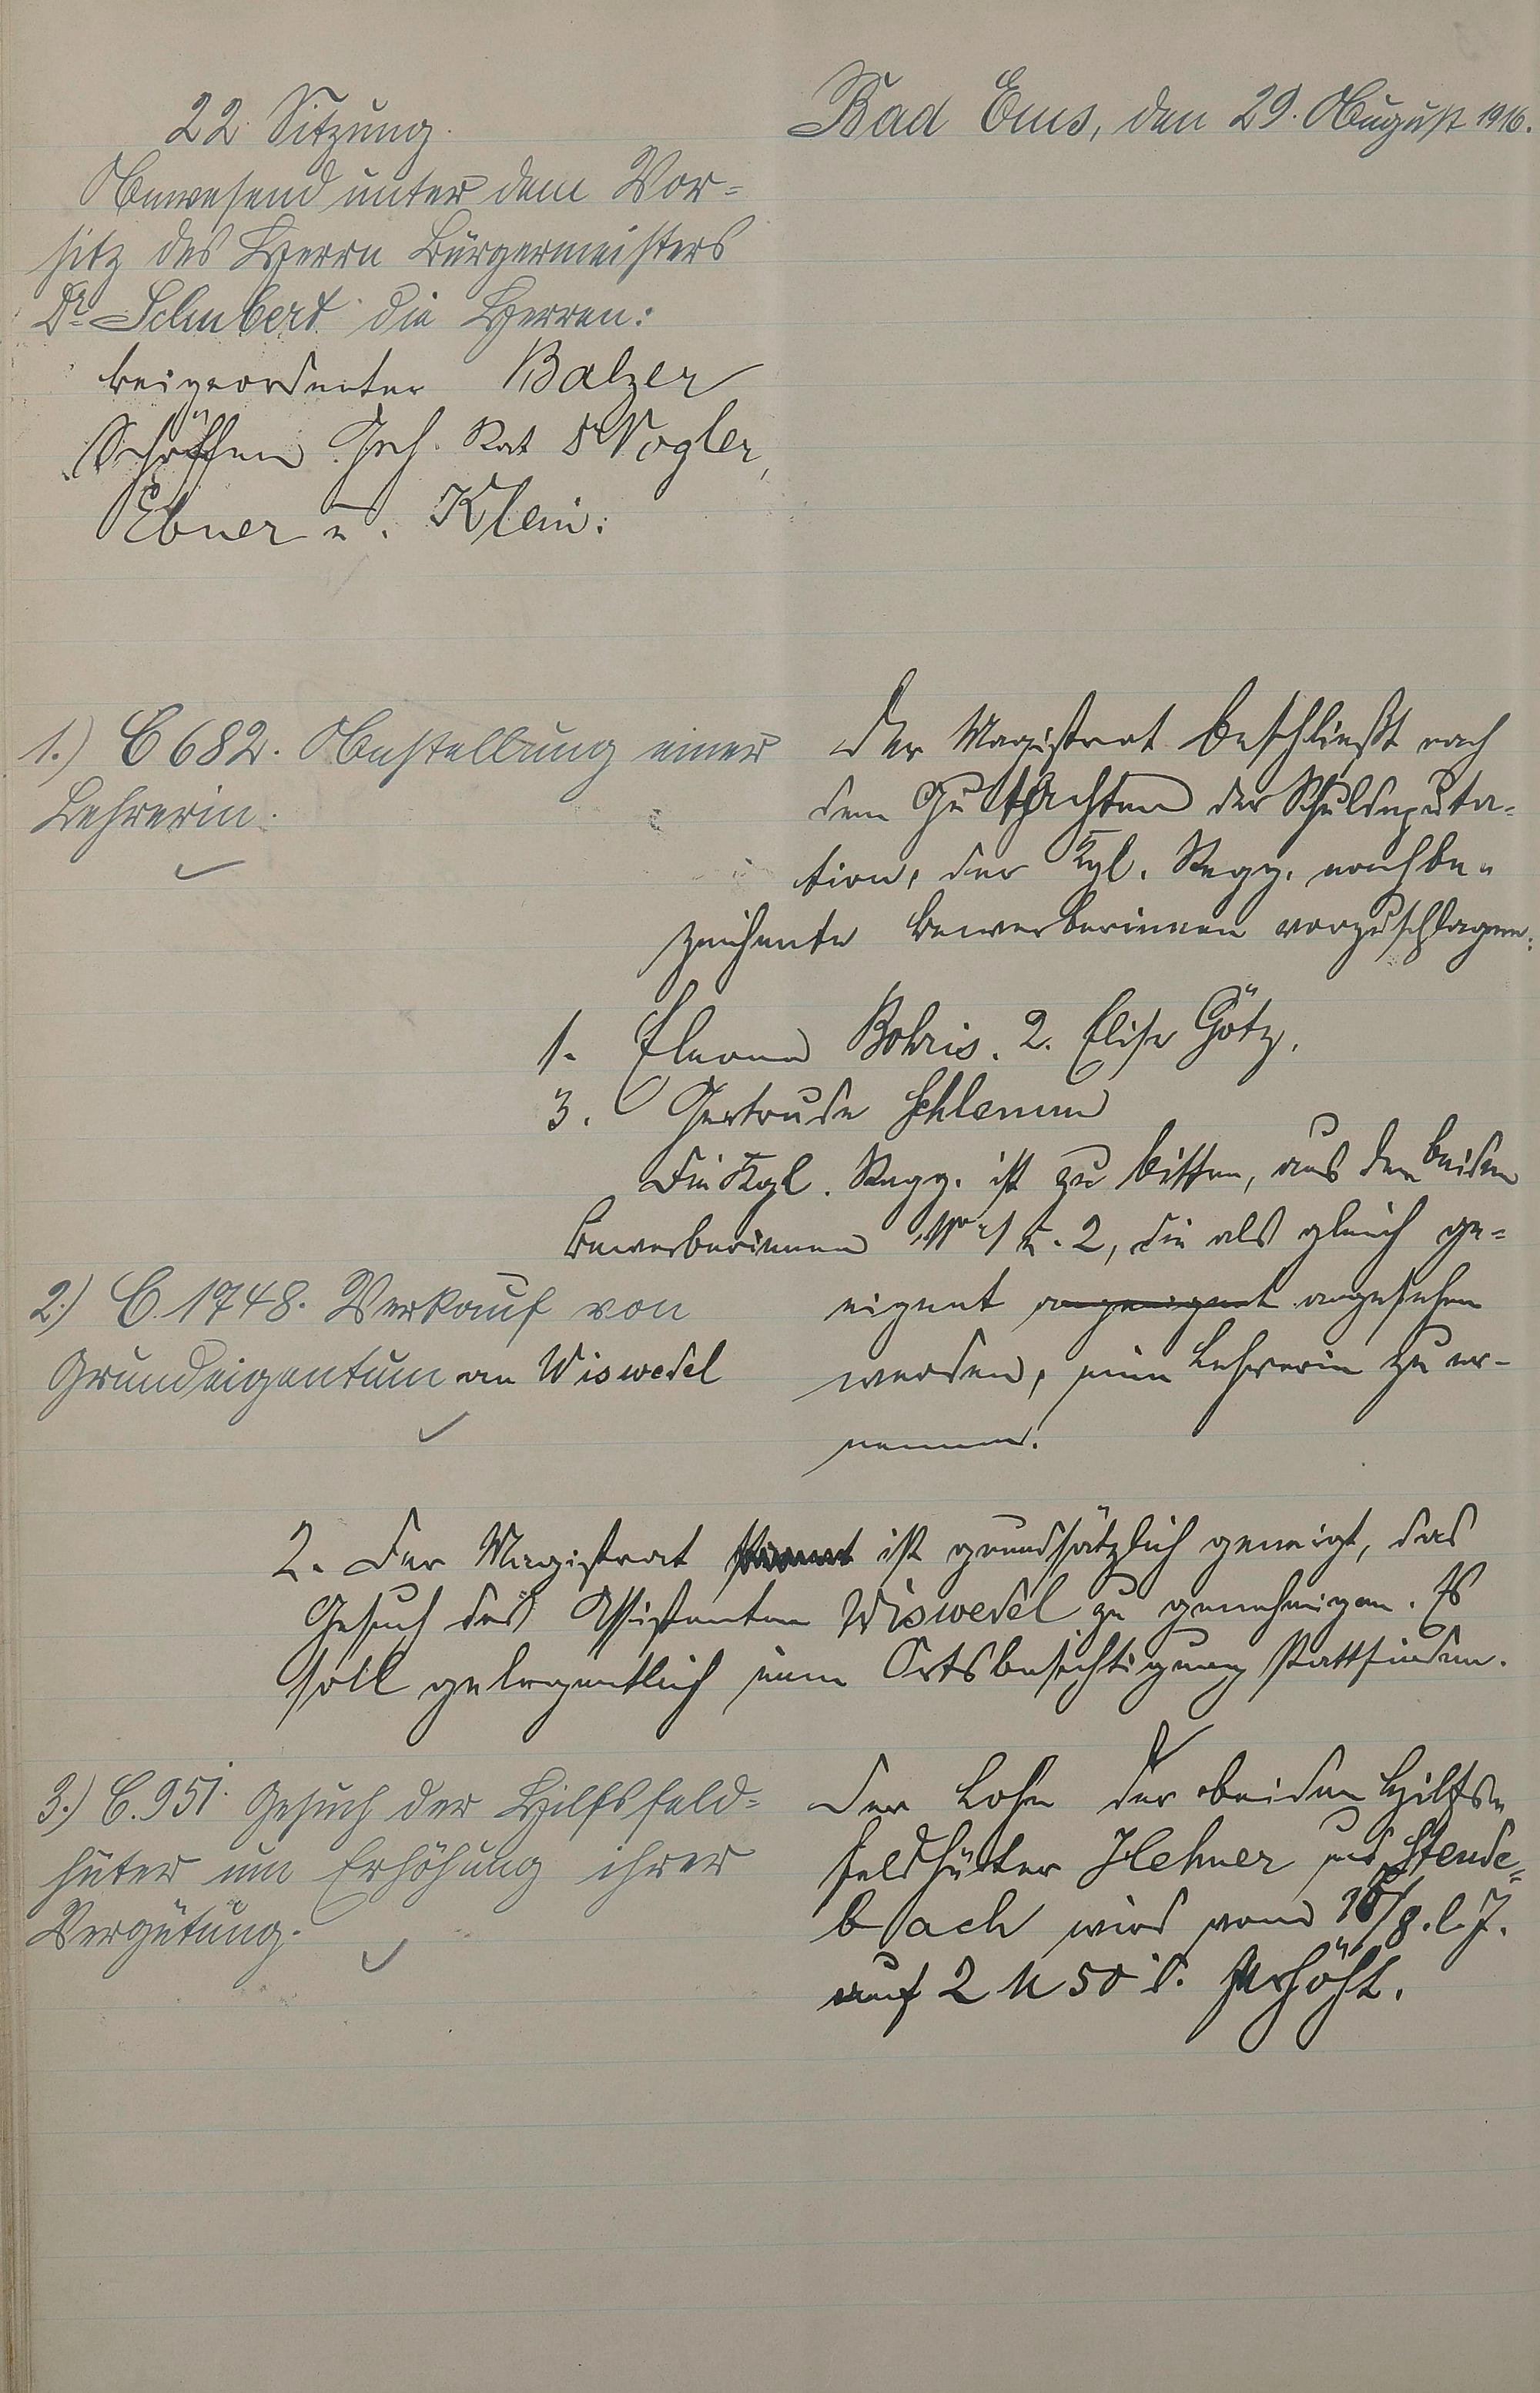 22. Sitzung.
Bad Ems, den 29. August 1916.
Anwesend unter dem Vor=
sitz des Herrn Bürgermeisters
Dr. Schubert die Herren:
Beigeordneter Balzer
Schöffen Geh. Rat Dr Vogler,
Ebner u. Klein.
1.) C 682. Anstellung einer
Lehrerin.
Der Magistrat beschließt nach
dem Gutachten der Schuldeputa-
tion, der Kgl. Regg. nachbe-
zeichnete Bewerberinnen vorzuschlagen:
1. Eleonore Bohris. 2. Elise Götz.
3. Gertrude Schlemm
Die Kgl. Regg. ist zu bitten, aus den beiden
Bewerberinnen No 1 u. 2, die als gleich ge=
eignet angeeignet angesehen
werden, eine Lehrerin zu er-
nennen.
2.) C. 1748. Verkauf von
Grundeigentum an Wiswedel
2. Der Magistrat stimmt ist grundsätzlich geneigt, das
Gesuch des Assistenten Wiswedel zu genehmigen. Es
soll gelegentlich eine Ortsbesichtigung stattfinden.
3.) C. 951. Gesuch der Hilfsfeld=
hüter um Erhöhung ihrer
Vergütung.
Der Lohn der beiden Hilfs-
feldhüter Hehner und Stende=
bach wird vom /8. l. J.
auf 2 M 50 d. erhöht.